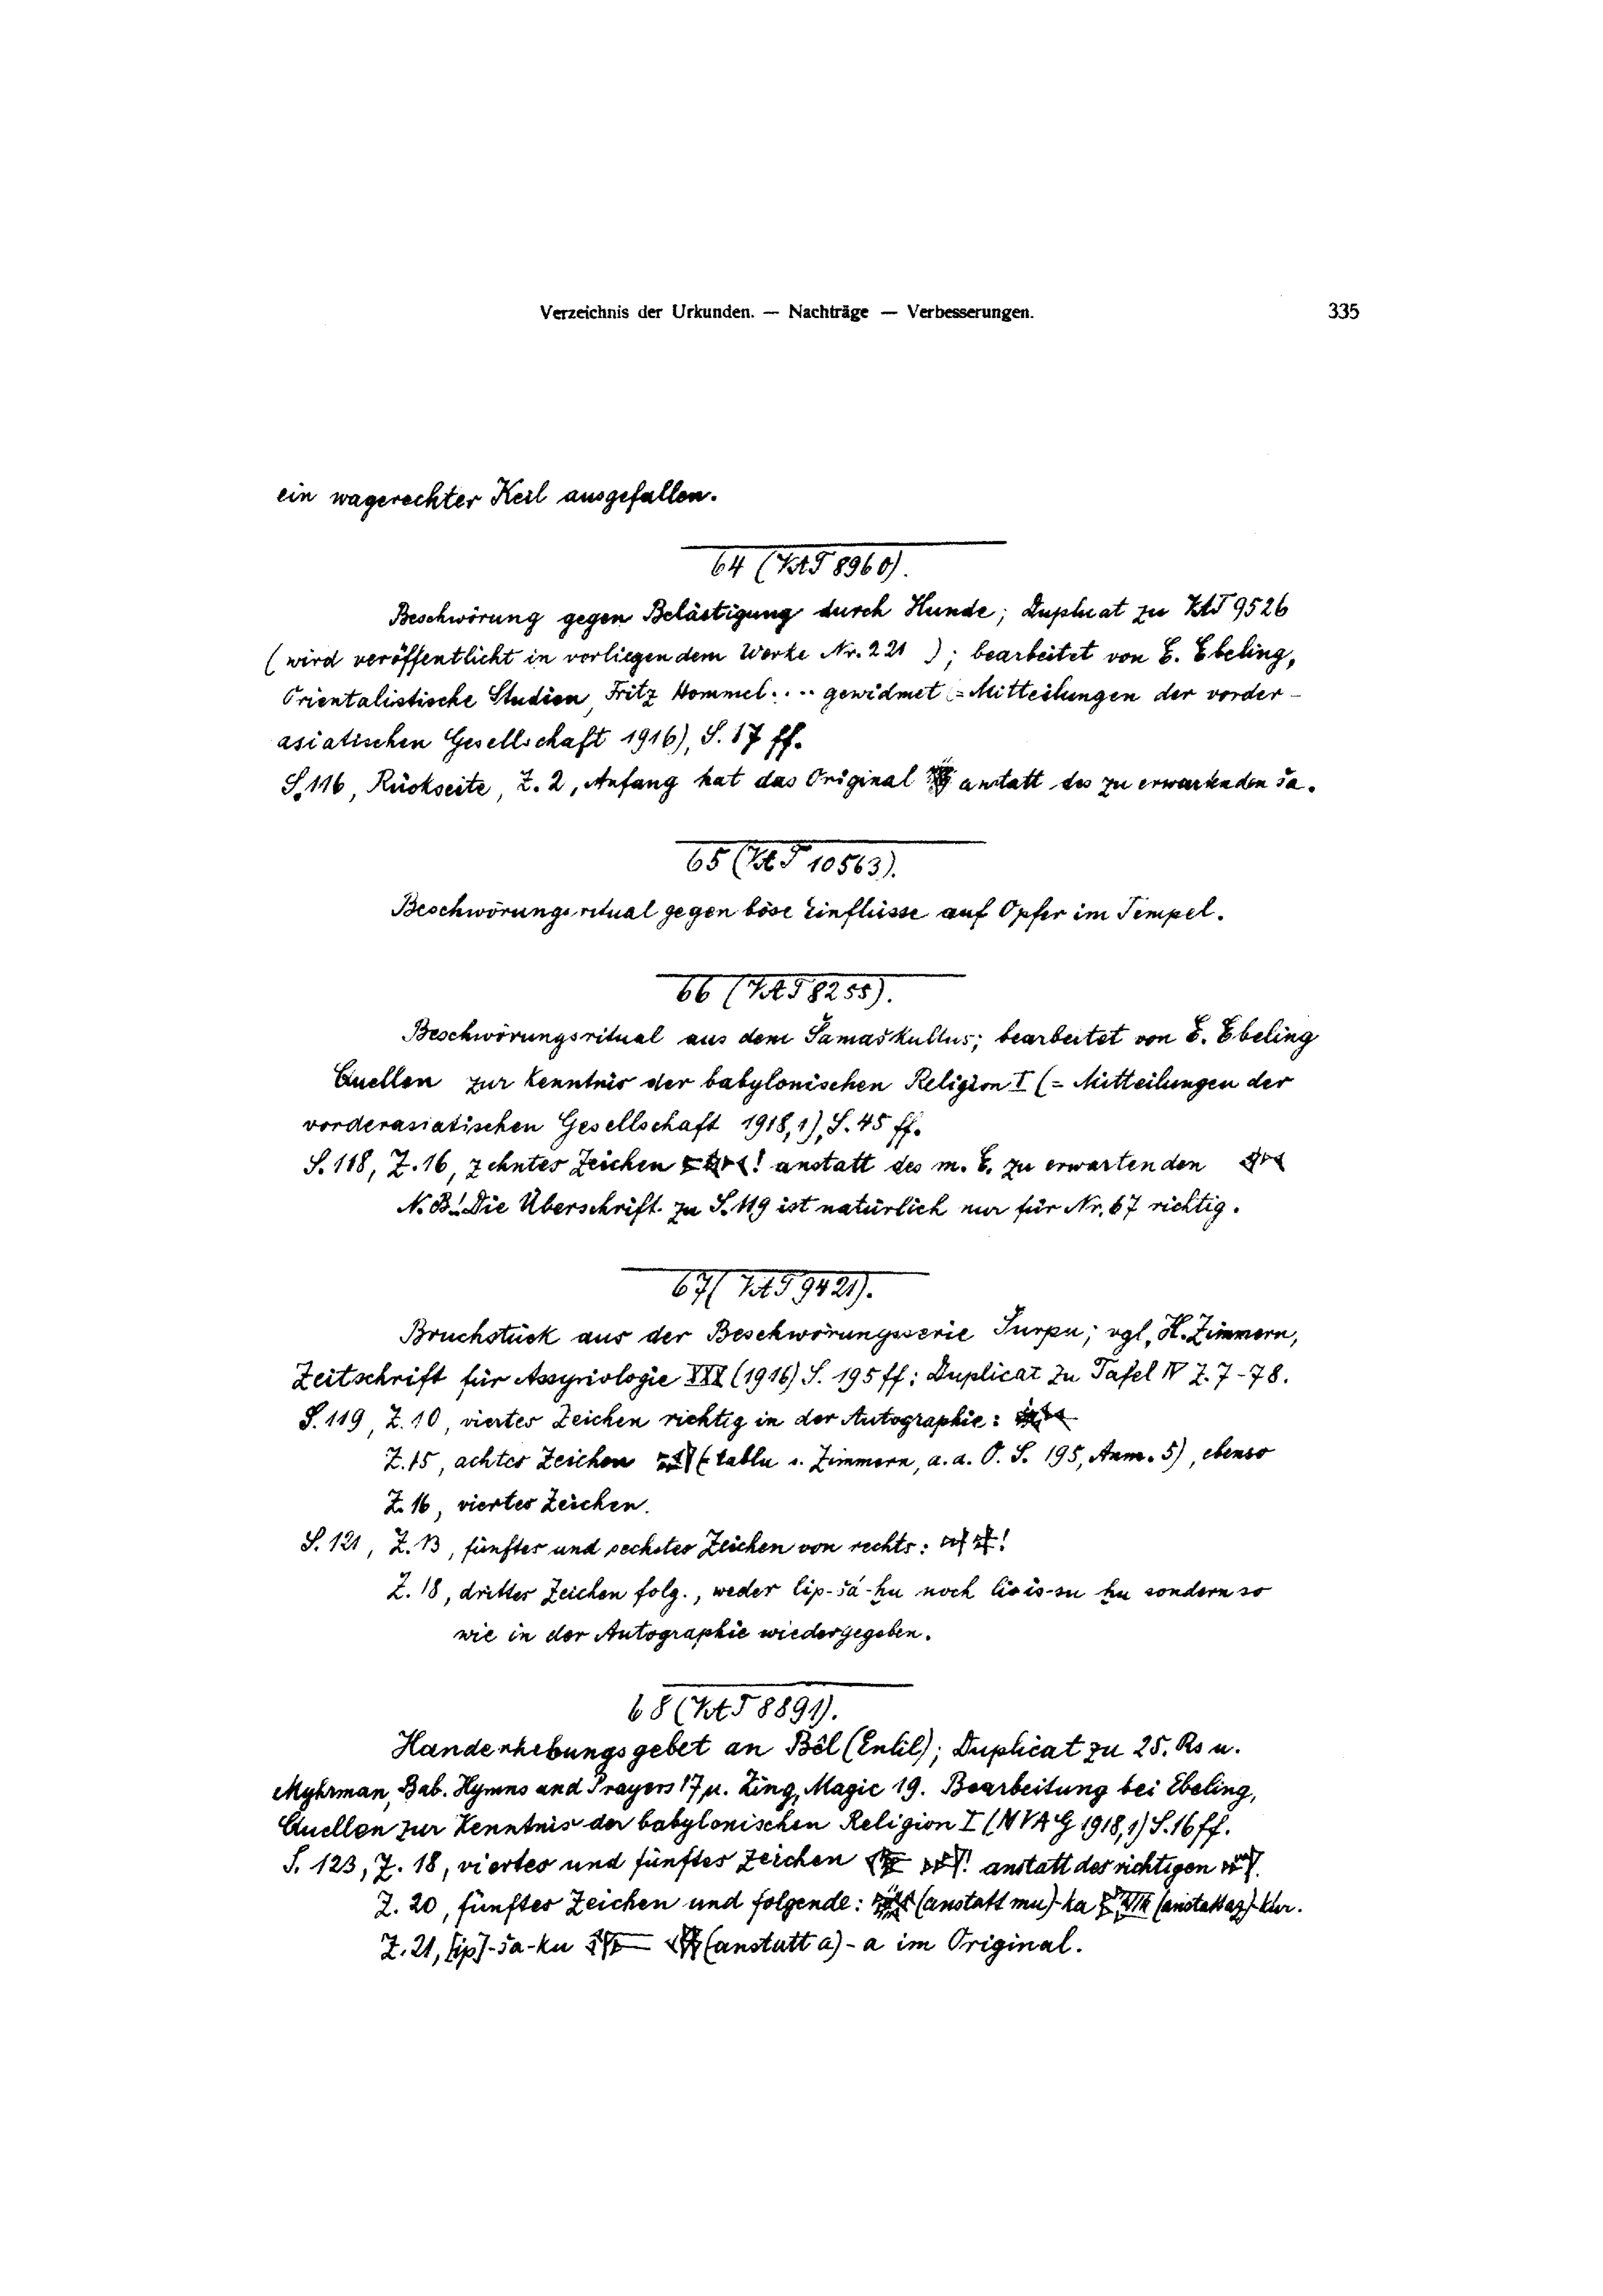 Verzeichnis der Urkunden. — Nachträge — Verbesserungen. 335
ein wagerechter Keil ausgefallen.
64 (VAT 8960).
Beschwörung gegen Belästigung durch Hunde; Duplicat zu VAT 9526
(wird veröffentlicht in vorliegendem Werke Nr. 221 ); bearbeitet von E. Ebeling,
Orientalistische Studien, Fritz Hommel . . . . gewidmet (= Mitteilungen der vorder-
asiatischen Gesellschaft 1916), S. 17 ff.
S. 116, Rückseite, Z. 2, Anfang hat das Original anstatt des zu erwartenden ša.
65 (VAT 10563).
Beschwörungsritual gegen böse Einflüsse auf Opfer im Tempel.
66 (VAT 8255).
Beschwörungsritual aus dem Šamaškultus; bearbeitet von E. Ebeling
Quellen zur Kenntnis der babylonischen Religion I (= Mitteilungen der
vorderasiatischen Gesellschaft 1918,1), S. 45 ff.
S. 118, Z. 16, zehntes Zeichen ! anstatt des m. E. zu erwartenden
N. B! Die Überschrift zu S. 119 ist natürlich nur für Nr. 67 richtig.
67 (VAT 9421).
Bruchstück aus der Beschwörungsserie Šurpu; vgl. H. Zimmern,
Zeitschrift für Assyriologie XXX (1916) S. 195 ff: Duplicat zu Tafel IV Z. 7-78.
S. 119, Z. 10, viertes Zeichen richtig in der Autographie:
Z. 15, achtes Zeichen (= tablu s. Zimmern, a. a. O. S. 195, Anm. 5), ebenso
Z. 16, viertes Zeichen.
S. 121, Z. 13, fünftes und sechstes Zeichen von rechts: !
Z. 18, drittes Zeichen folg., weder lip-šá-ḫu noch sondern so
wie in der Autographie wiedergegeben.
68 (VAT 8891).
Handerhebungsgebet an Bêl (Enlil); Duplicat zu 25. Rs u.
Myhrman, Bab. Hymns and Prayers 17 u. King, Magic 19. Bearbeitung bei Ebeling,
Quellen zur Kenntnis der babylonischen Religion I (MVAG 1918,1) S. 16 ff.
S. 123, Z. 18, viertes und fünftes Zeichen ! anstatt des richtigen
Z. 20, fünftes Zeichen und folgende: (anstatt mu)-ka (anstatt az)-kur.
Z. 21, [ip]-ša-ku (anstatt a)-a im Original.